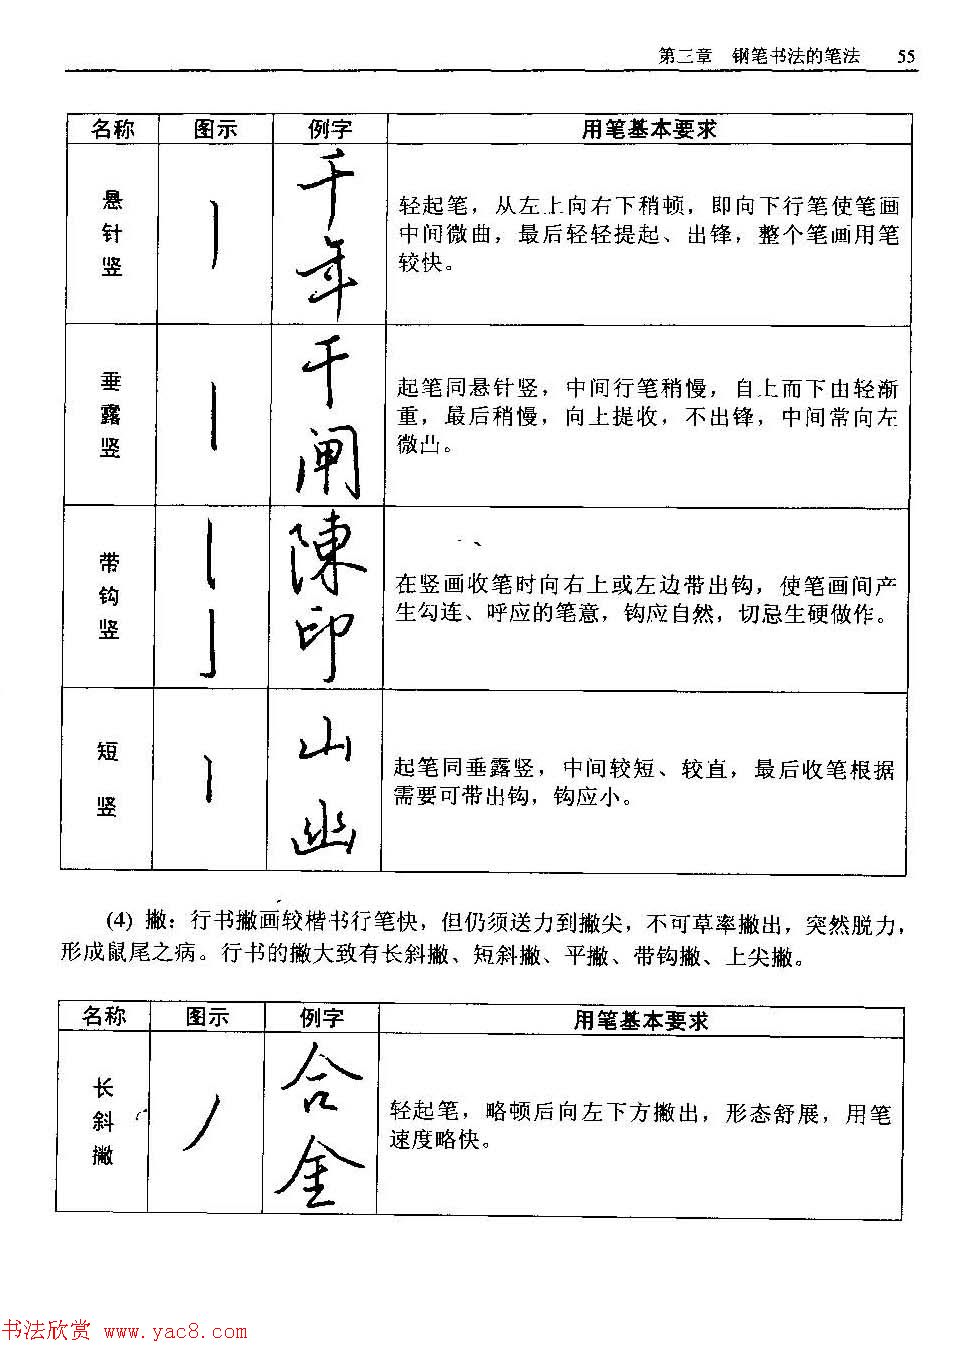 第三章 钢笔书法的笔法 55
名称 图示 例字 用笔基本要求
悬针竖
千
年
轻起笔，从左上向右下稍顿，即向下行笔使笔画
中间微曲，最后轻轻提起、出锋，整个笔画用笔
较快。
垂露竖
干
闸
起笔同悬针竖，中间行笔稍慢，自上而下由轻渐
重，最后稍慢，向上提收，不出锋，中间常向左
微凸。
带钩竖
陳
印
在竖画收笔时向右上或左边带出钩，使笔画间产
生勾连、呼应的笔意，钩应自然，切忌生硬做作。
短竖
山
幽
起笔同垂露竖，中间较短、较直，最后收笔根据
需要可带出钩，钩应小。
(4) 撇：行书撇画较楷书行笔快，但仍须送力到撇尖，不可草率撇出，突然脱力，
形成鼠尾之病。行书的撇大致有长斜撇、短斜撇、平撇、带钩撇、上尖撇。
名称 图示 例字 用笔基本要求
长斜撇
合
金
轻起笔，略顿后向左下方撇出，形态舒展，用笔
速度略快。
书法欣赏 www.yac8.com